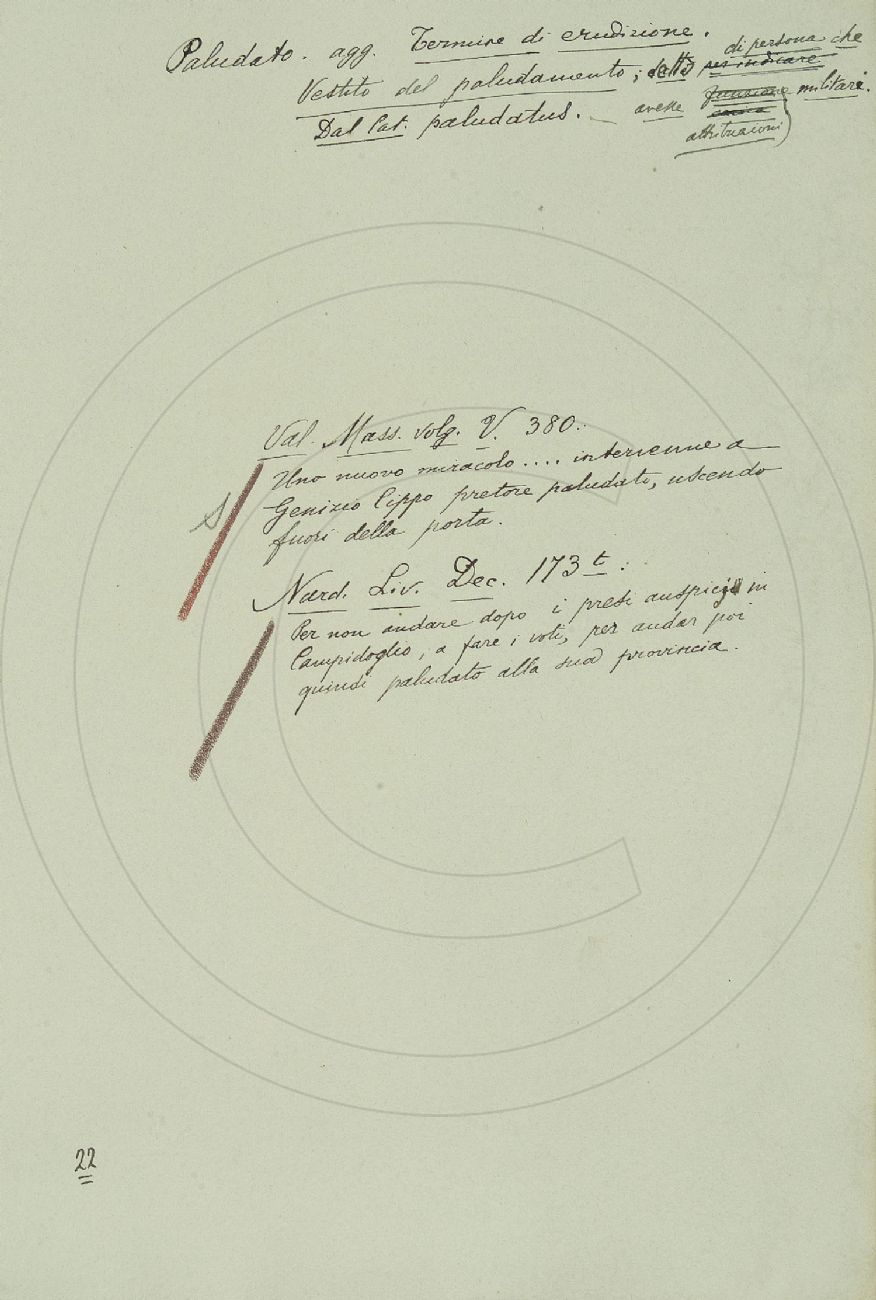 Paludato. agg. Termine di erudizione.
Vestito del paludamento; detto di persona che per indicare
avesse funzione carica attribuzioni militari.
Dal lat. paludatus.
Val. Mass. volg. V. 380.
Uno nuovo miracolo.... intervenne a
Genizio Cippo pretore paludato, uscendo
fuori della porta.
S
Nard. Liv. Dec. 173 t.
Per non andare dopo i presi auspicj in
Campidoglio, a fare i voti, per andar poi
quindi paludato alla sua provincia.
22